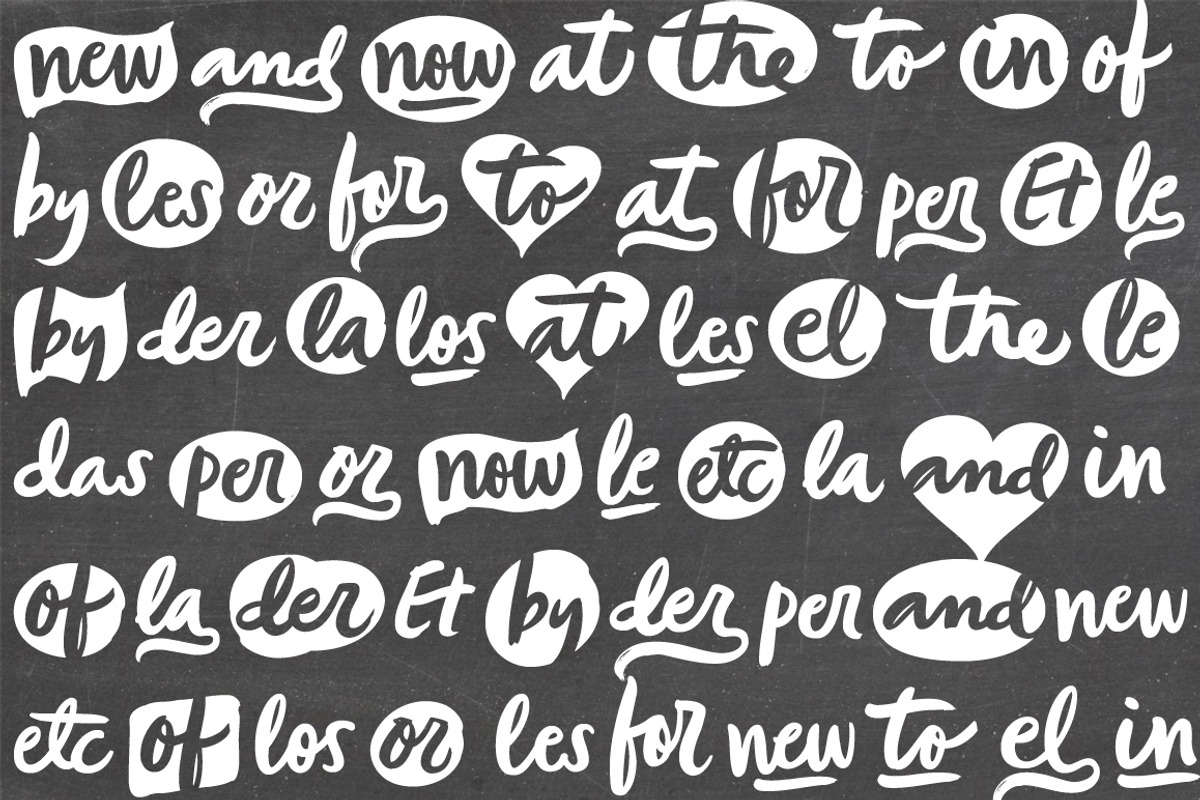 new and now at the to in of
by les or for to at for per Et le
by der la los at les el the le
das per or now le etc la and in
of la der Et by der per and new
etc of los or les for new to el in